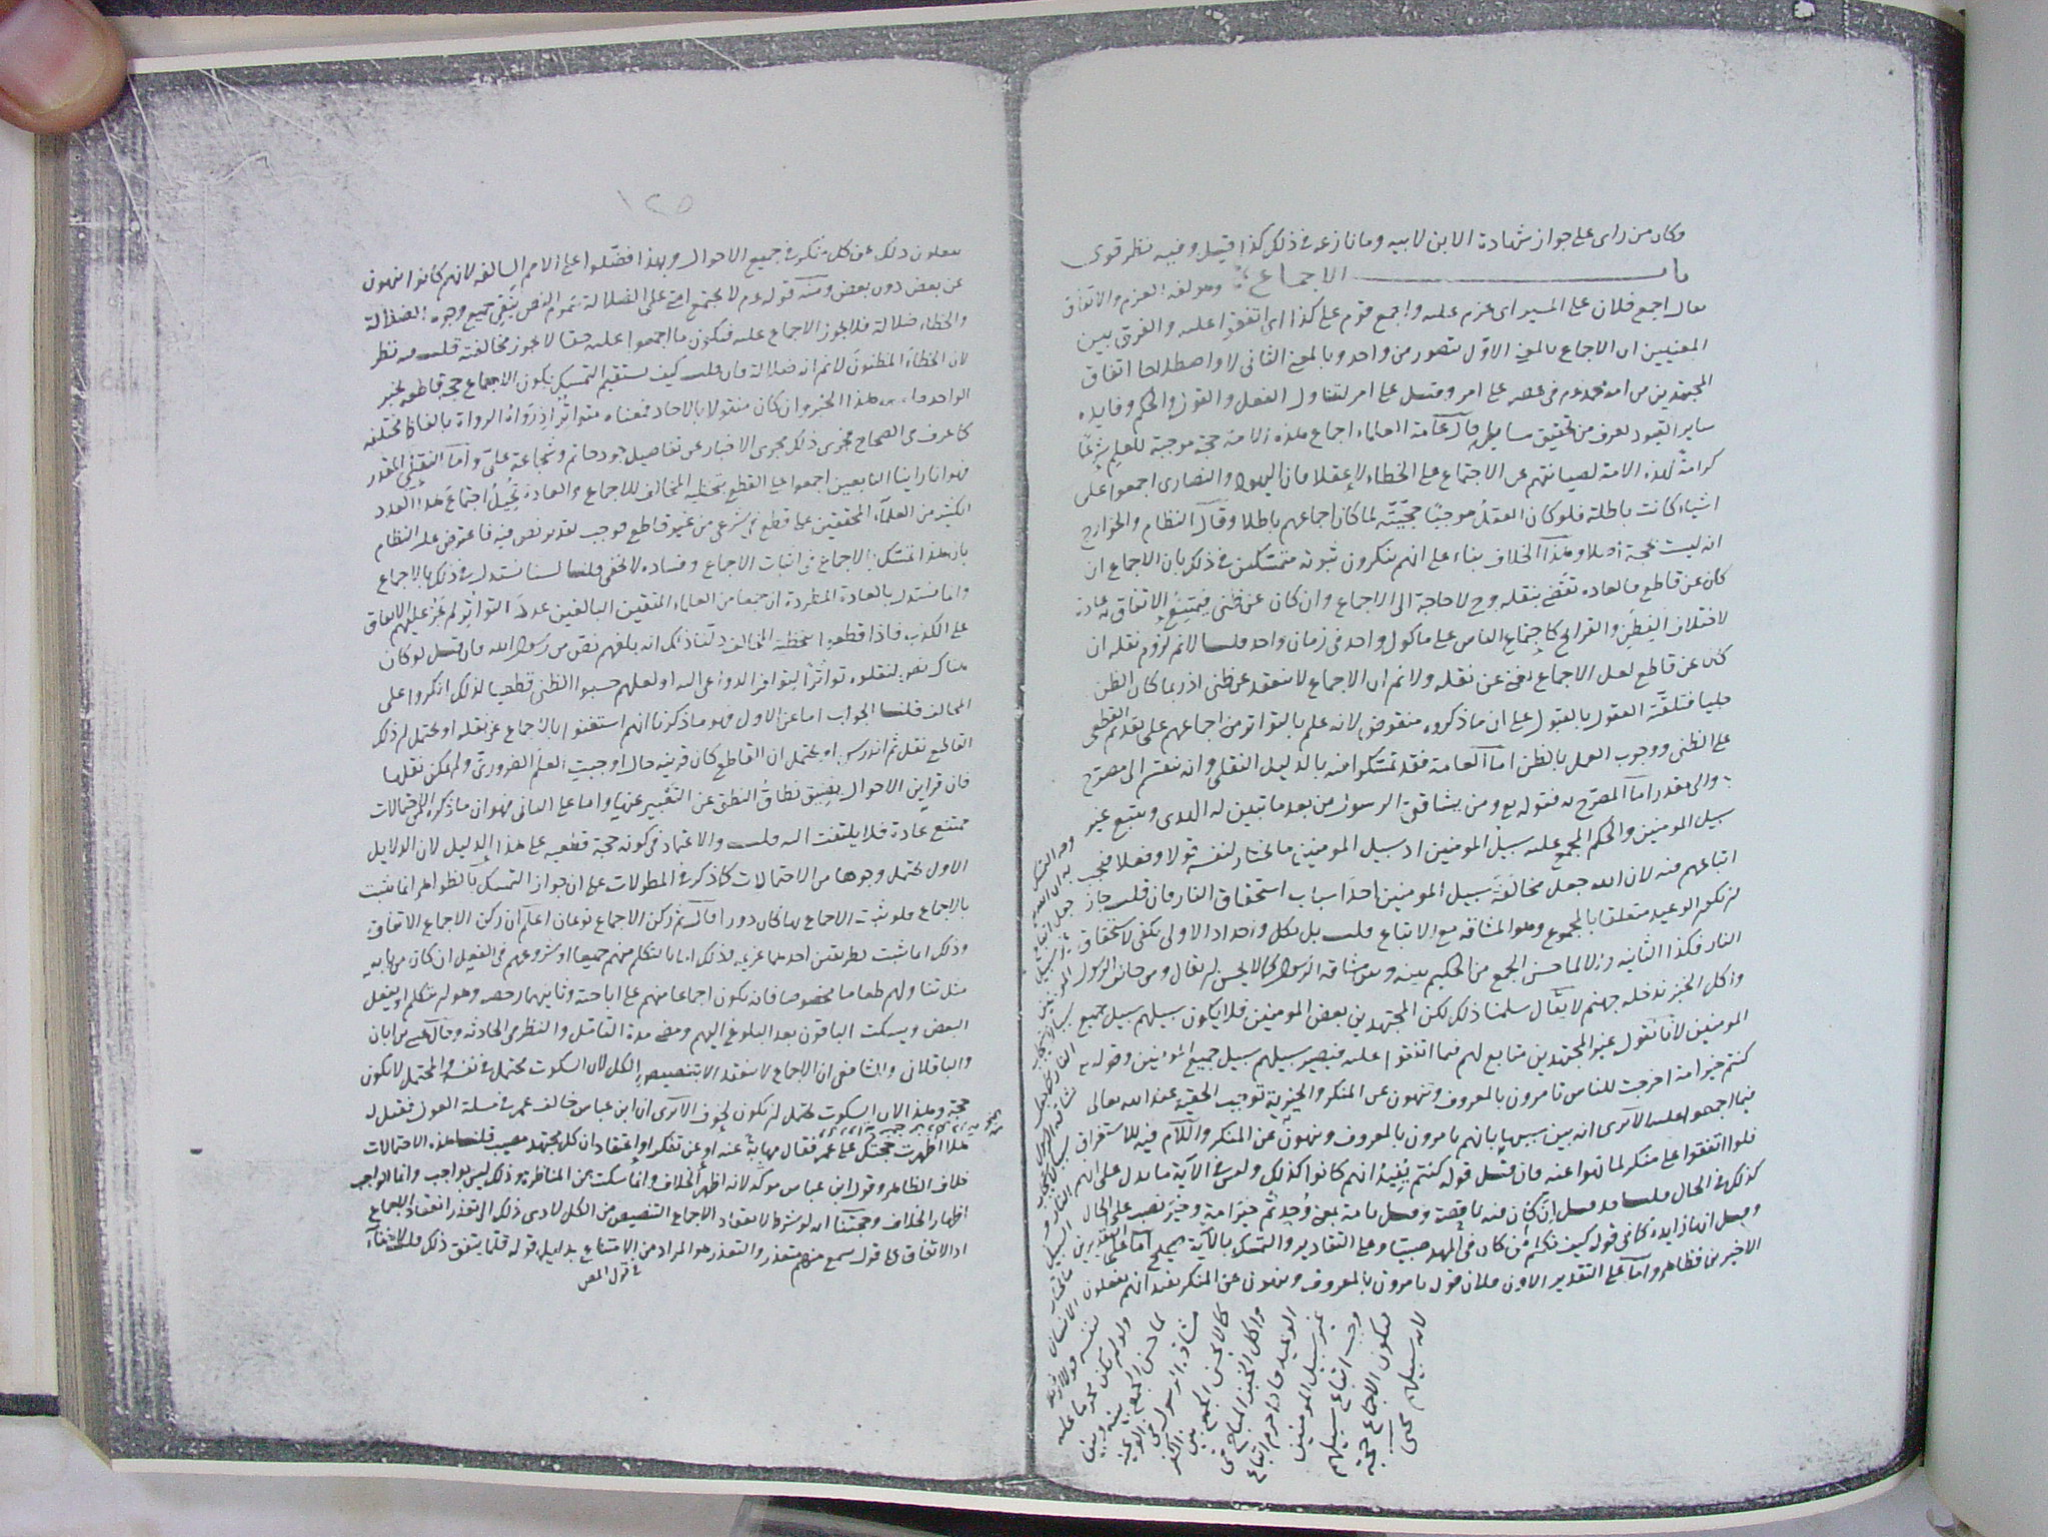 فكان من راى على جواز شهادة الابن لابيه وما نازعه في ذلك كذا قيل وفيه نظر قوى
باب الاجماع وهو لغة العزم والاتفاق
يقال اجمع فلان على المسير اى عزم عليه واجمع قوم على كذا اى اتفقوا عليه والفرق بين
المعنيين ان الاجماع بالمعنى الاول يتصور من واحد وبالمعنى الثانى لا واصطلاحا اتفاق
المجتهدين من امة محمد عم في عصر على امر وقيل على امر ليتناول الفعل والقول والحكم وفايده
ساير القيود تعرف من تحقيق مسايله قال عامة العلماء اجماع هذه الامة حجة موجبة للعلم شرعا
كرامة لهذه الامة لصيانتهم عن الاجتماع على الخطاء لا عقلا فان اليهود والنصارى اجمعوا على
اشياء كانت باطلة فلو كان العقل موجبا حجيته لما كان اجماعهم باطلا وقال النظام والخوارج
انه ليست بحجة اصلا وهذا الخلاف بناء على انهم ينكرون ثبوته متمسكين في ذلك بان الاجماع ان
كان عن قاطع فالعاده تقضى بنقله وح لا حاجة الى الاجماع وان كان عن ظنى فيمتنع الاتفاق به عادة
لاختلاف الفطن والقرائح كاجتماع الناس على ماكول واحد في زمان واحد قلنا لا نم لزوم نقله ان
كان عن قاطع لعل الاجماع يغنى عن نقله ولا نم ان الاجماع لا ينعقد عن ظنى اذ ربما كان الظن
جليا فتلقته العقول بالقبول على ان ما ذكروه منقوض لانه علم بالتواتر من اجماعهم على تقديم القطعى
على الظنى ووجوب العمل بالظن اما العامة فقد تمسكوا فيه بالدليل النقلى وانه ينقسم الى مصرح
والى مقدر اما المصرح به فقوله تع ومن يشاقق الرسول من بعد ما تبين له الهدى ويتبع غير
سبيل المومنين والحكم المجمع عليه سبيل المومنين اذ سبيل المومنين ما يختار لنفسه قولا وفعلا فيجب
اتباعهم فيه لان الله جعل مخالفة سبيل المومنين احد اسباب استحقاق النار فان قلت جاز
ان يكون الوعيد متعلقا بالمجموع وهو المشاقة مع الاتباع قلت بل بكل واحد اذ الاولى تكفى لاستحقاق
النار فكذا الثانية والا لما حسن الجمع من الحكيم بينه وبين مشاقة الرسول كما لا يحسن ان يقال ومن خالف الرسول
واكل الخبز ندخله جهنم لا يقال سلمنا ذلك لكن المجتهدين بعض المومنين فلا يكون سبيلهم سبيل جميع
المومنين لانا نقول غير المجتهدين متابع لهم فيما اتفقوا عليه فيصير سبيلهم سبيل جميع المومنين وقوله تع
كنتم خير امة اخرجت للناس تامرون بالمعروف وتنهون عن المنكر والخيرية توجب الحقية عند الله تعالى
فيما اجمعوا عليه الا ترى انه بين سببها بانهم يامرون بالمعروف وينهون عن المنكر واللام فيه للاستغراق
فلوا اتفقوا على منكر لما نهوا عنه فان قيل قوله كنتم يفيد انهم كانوا كذلك وليس في الآية ما يدل على انهم
كذلك في الحال قلنا قد قيل ان كان فيه ناقصة وقيل تامة بمعنى وجدتم خير امة وخير نصب على الحال
وقيل انها زايدة كما في قوله كيف نكلم من كان في المهد صبيا وعلى التقادير والتمسك بالآية صحيح اما على التقديرين
الاخيرين فظاهر واما على التقدير الاول فلان قوله يامرون بالمعروف وينهون عن المنكر يفيد انهم يفعلون
وجه التمسك
به ان الله تع
جعل اتباع
غير سبيل
المومنين
سببا لاستحقاق
النار كما جعل
مشاقة الرسول
سببا لاستحقاق
النار و
السبيل
ما يختار
الانسان
لنفسه قولا وفعلا
ولو لم يكن محرما عليه
لما حسن الجمع بينه وبين
مشاقة الرسول في الوعيد
كما لا يحسن الجمع بين الكفر
واكل الخبز المباح في
الوعيد فاذا حرم اتباع
غير سبيل المومنين
وجب اتباع سبيلهم
فيكون الاجماع حجة
لانه سبيلهم
١٢٥
يفعلون ذلك عن كل منكر في جميع الاحوال وبهذا فضلوا على الامم السالفة لانهم كانوا ينهون
عن بعض دون بعض ومنه قوله عم لا يجتمع امتى على الضلالة عموم النص ينفى جميع وجوه الضلالة
والخطاء ضلالة فلا يجوز الاجماع عليه فيكون ما اجمعوا عليه حقا لا يجوز مخالفته قلت فيه نظر
لان الخطاء المظنون لا نم انه ضلالة فان قلت كيف يستقيم التمسك بكون الاجماع حجة قاطعة بخبر
الواحد قلت هذا الخبر وان كان منقولا بالاحاد فمعناه متواتر اذ رواه الرواة بالفاظ مختلفة
كما عرف من الصحاح فجرى ذلك مجرى الاخبار عن تفاصيل جود حاتم وشجاعة على واما النقلى المقدر
فهو انا راينا التابعين اجمعوا على القطع بتخطية المخالف للاجماع والعادة تحيل اجتماع هذا العدد
الكثير من العلماء المحققين على قطع في شرعى من غير قاطع فوجب تقدير نص فيه فاعترض عليه النظام
بان هذا تمسك بالاجماع في اثبات الاجماع وفساده لا يخفى قلنا لسنا نستدل في ذلك بالاجماع
وانما نستدل بالعادة المطردة ان جمعا من العلماء المتقين البالغين عدد التواتر لم يجز عليهم الاتفاق
على الكذب فاذا قطعوا بتخطئة المخالف دلنا ذلك انه بلغهم نص من رسول الله فان قيل لو كان
هناك نص لنقلوه تواترا لتوافر الدواعى اليه او لعلهم حسبوا الظنى قطعيا لذلك انكروا على
المخالف قلنا الجواب اما عن الاول فهو ما ذكرنا انهم استغنوا بالاجماع عن نقله او يحتمل ان ذلك
القاطع نقل ثم اندرس او يحتمل ان القاطع كان قرينة حال اوجبت العلم الضرورى ولم يمكن نقلها
فان قراين الاحوال يضيق نطاق النطق عن التعبير عنها واما على الثانى فهو ان ما ذكره من الاحتمالات
ممتنع عادة فلا يلتفت اليه قلت والاعتماد في كونه حجة قطعية على هذا الدليل لان الدلايل
الاول يحتمل وجوها من الاحتمالات كما ذكر في المطولات على ان جواز التمسك بالظواهر انما يثبت
بالاجماع فلو ثبت الاجماع بها كان دورا قال ثم ركن الاجماع نوعان اعلم ان ركن الاجماع الاتفاق
وذلك انما يثبت بطريقين احدهما عزيمة وذلك اما بالتكلم منهم جميعا او شروعهم في الفعل ان كان من بابه
مثل تناولهم طعاما مخصوصا فانه يكون اجماعا منهم على اباحته وثانيهما رخصة وهو ان يتكلم او يفعل
البعض ويسكت الباقون بعد البلوغ اليهم ومضى مدة التأمل والنظر في الحادثة وقال عيسى بن ابان
والباقلانى والشافعى ان الاجماع لا ينعقد الا بتنصيص الكل لان السكوت محتمل في نفسه والمحتمل لا يكون
حجة وهذا لان السكوت يحتمل ان يكون لخوف الا ترى ان ابن عباس خالف عمر في مسئلة العول فقيل له
هلا اظهرت حجتك على عمر فقال مهابة عنه او عن تفكر او اعتقاد ان كل مجتهد مصيب قلنا هذه الاحتمالات
خلاف الظاهر وقول ابن عباس موكد لانه اظهر الخلاف وانما سكت عن المناظرة وذلك ليس بواجب وانما الواجب
اظهار الخلاف وحجتنا انه لو شرط لانعقاد الاجماع التنصيص من الكل لادى ذلك الى تعذر انعقاد الاجماع
اذ الاتفاق على قول يسمع منهم متعذر والتعذر هو المراد من الامتناع بدليل قوله قلما يتفق ذلك
في قول المص